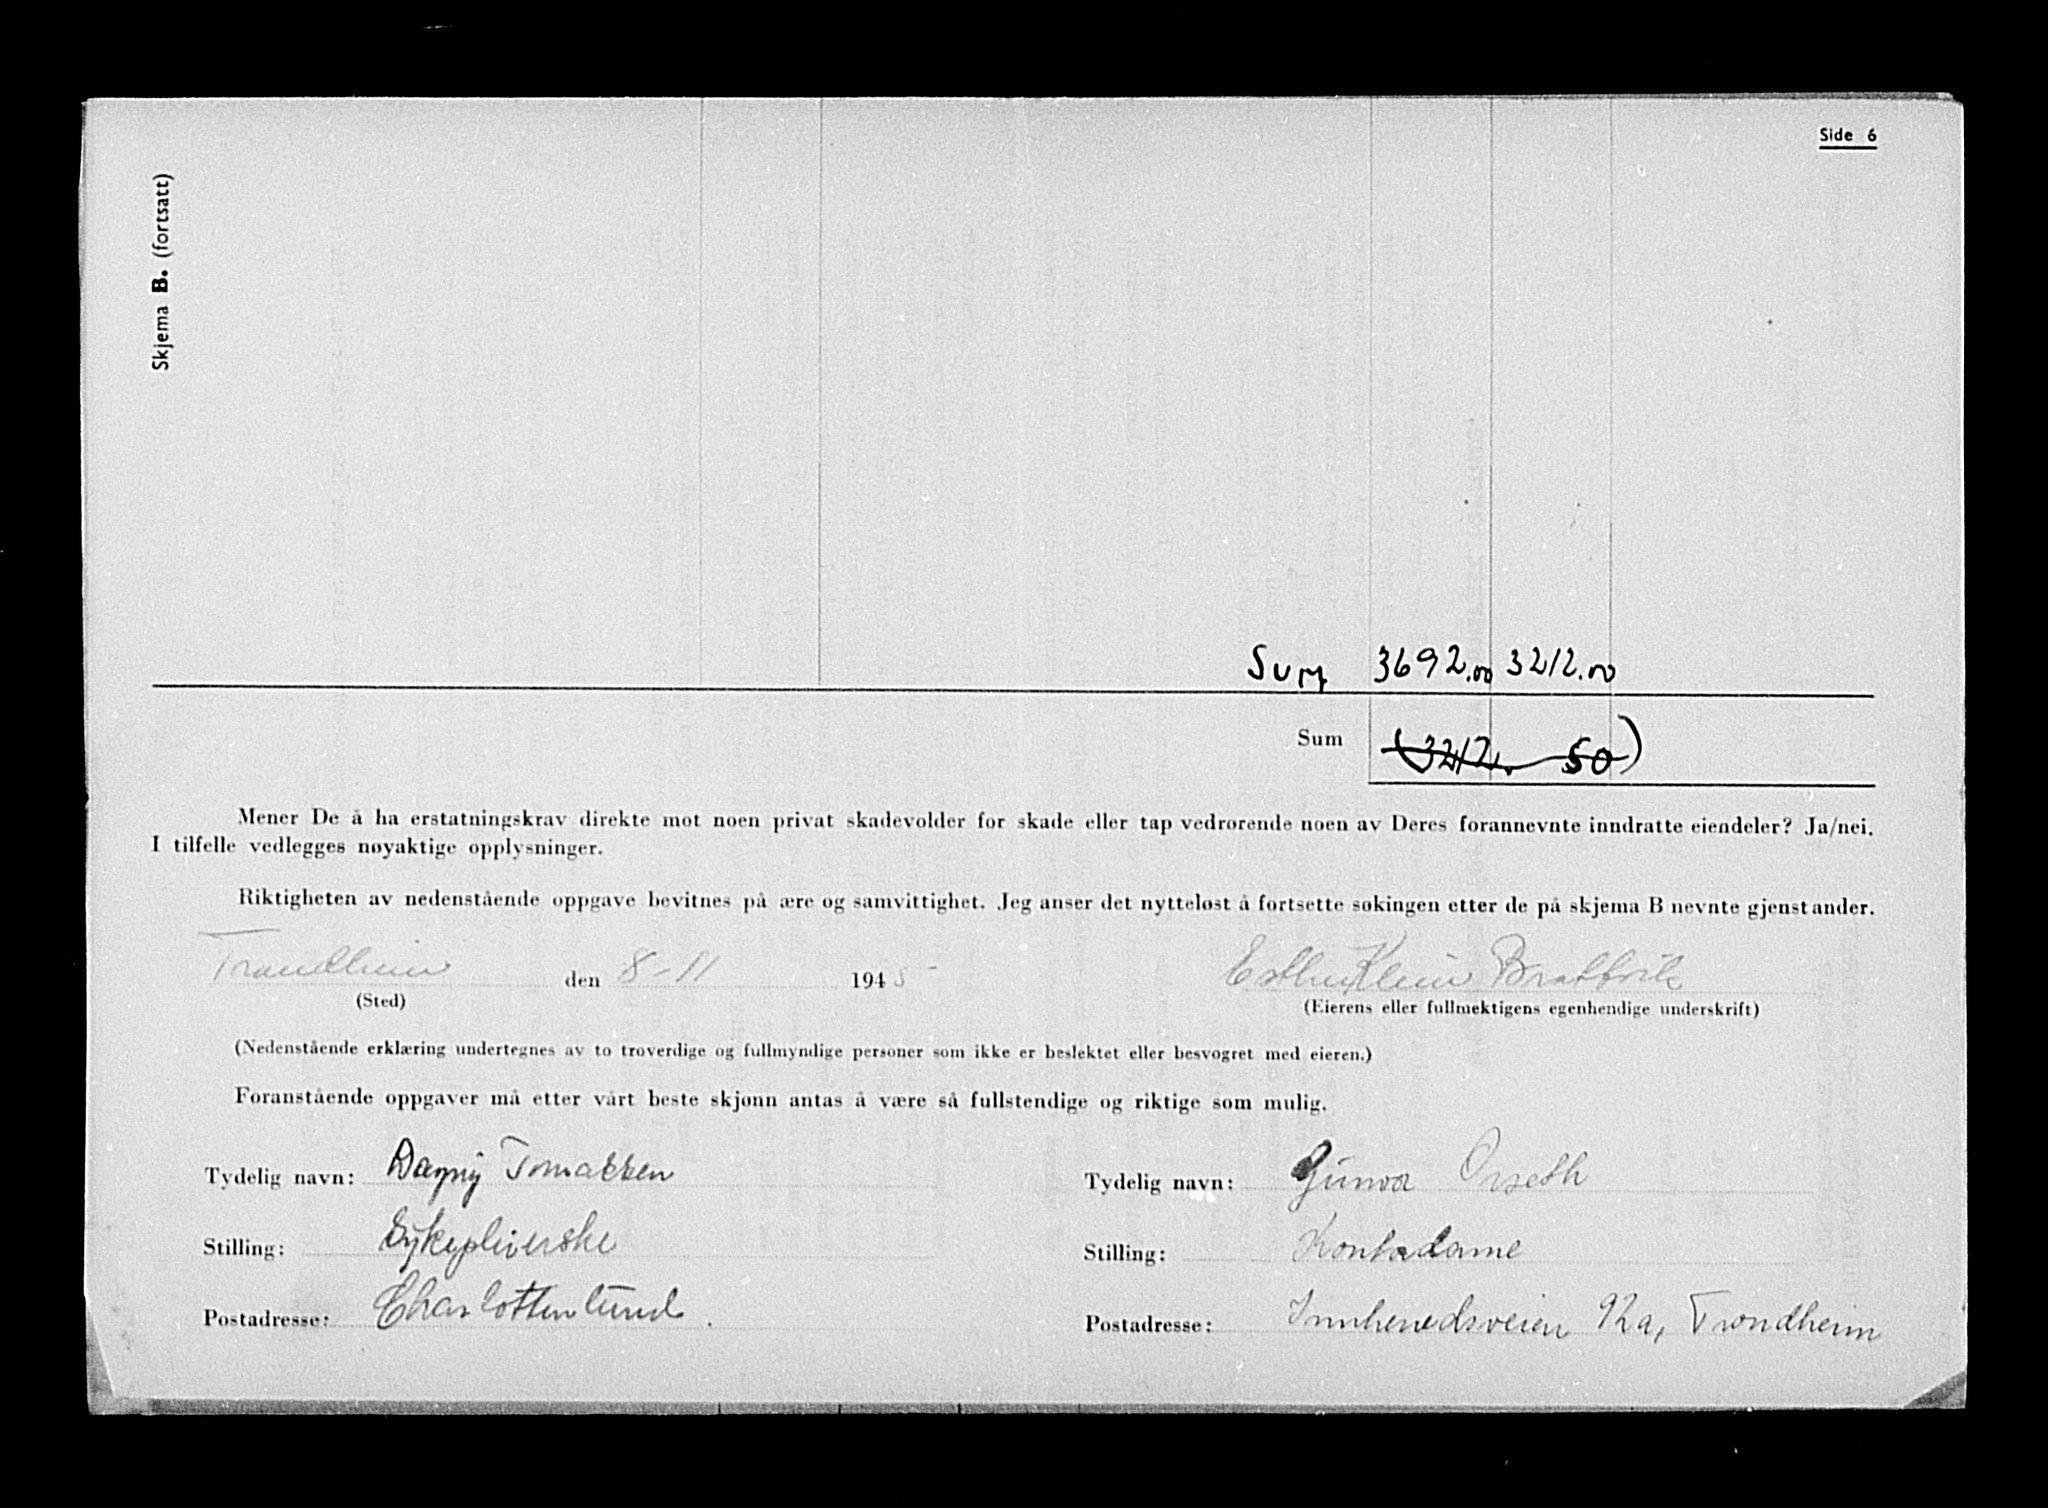 Side 6
Skjema B. (fortsatt)
Sum 3692.00 3212.00
Sum (3212. 50)
Mener De å ha erstatningskrav direkte mot noen privat skadevolder for skade eller tap vedrørende noen av Deres forannevnte inndratte eiendeler? Ja/nei.
I tilfelle vedlegges nøyaktige opplysninger.
Riktigheten av nedenstående oppgave bevitnes på ære og samvittighet. Jeg anser det nytteløst å fortsette søkingen etter de på skjema B nevnte gjenstander.
Trondheim den 8-11 1945 Esther Klein Brattvik
(Sted) (Eierens eller fullmektigens egenhendige underskrift)
(Nedenstående erklæring undertegnes av to troverdige og fullmyndige personer som ikke er beslektet eller besvogret med eieren.)
Foranstående oppgaver må etter vårt beste skjønn antas å være så fullstendige og riktige som mulig.
Tydelig navn: Dagny Tomassen Tydelig navn: Gunvor Orseth
Stilling: Sykepleierske Stilling: Kontordame
Postadresse: Charlottenlund. Postadresse: Innherredsveien 92a, Trondheim